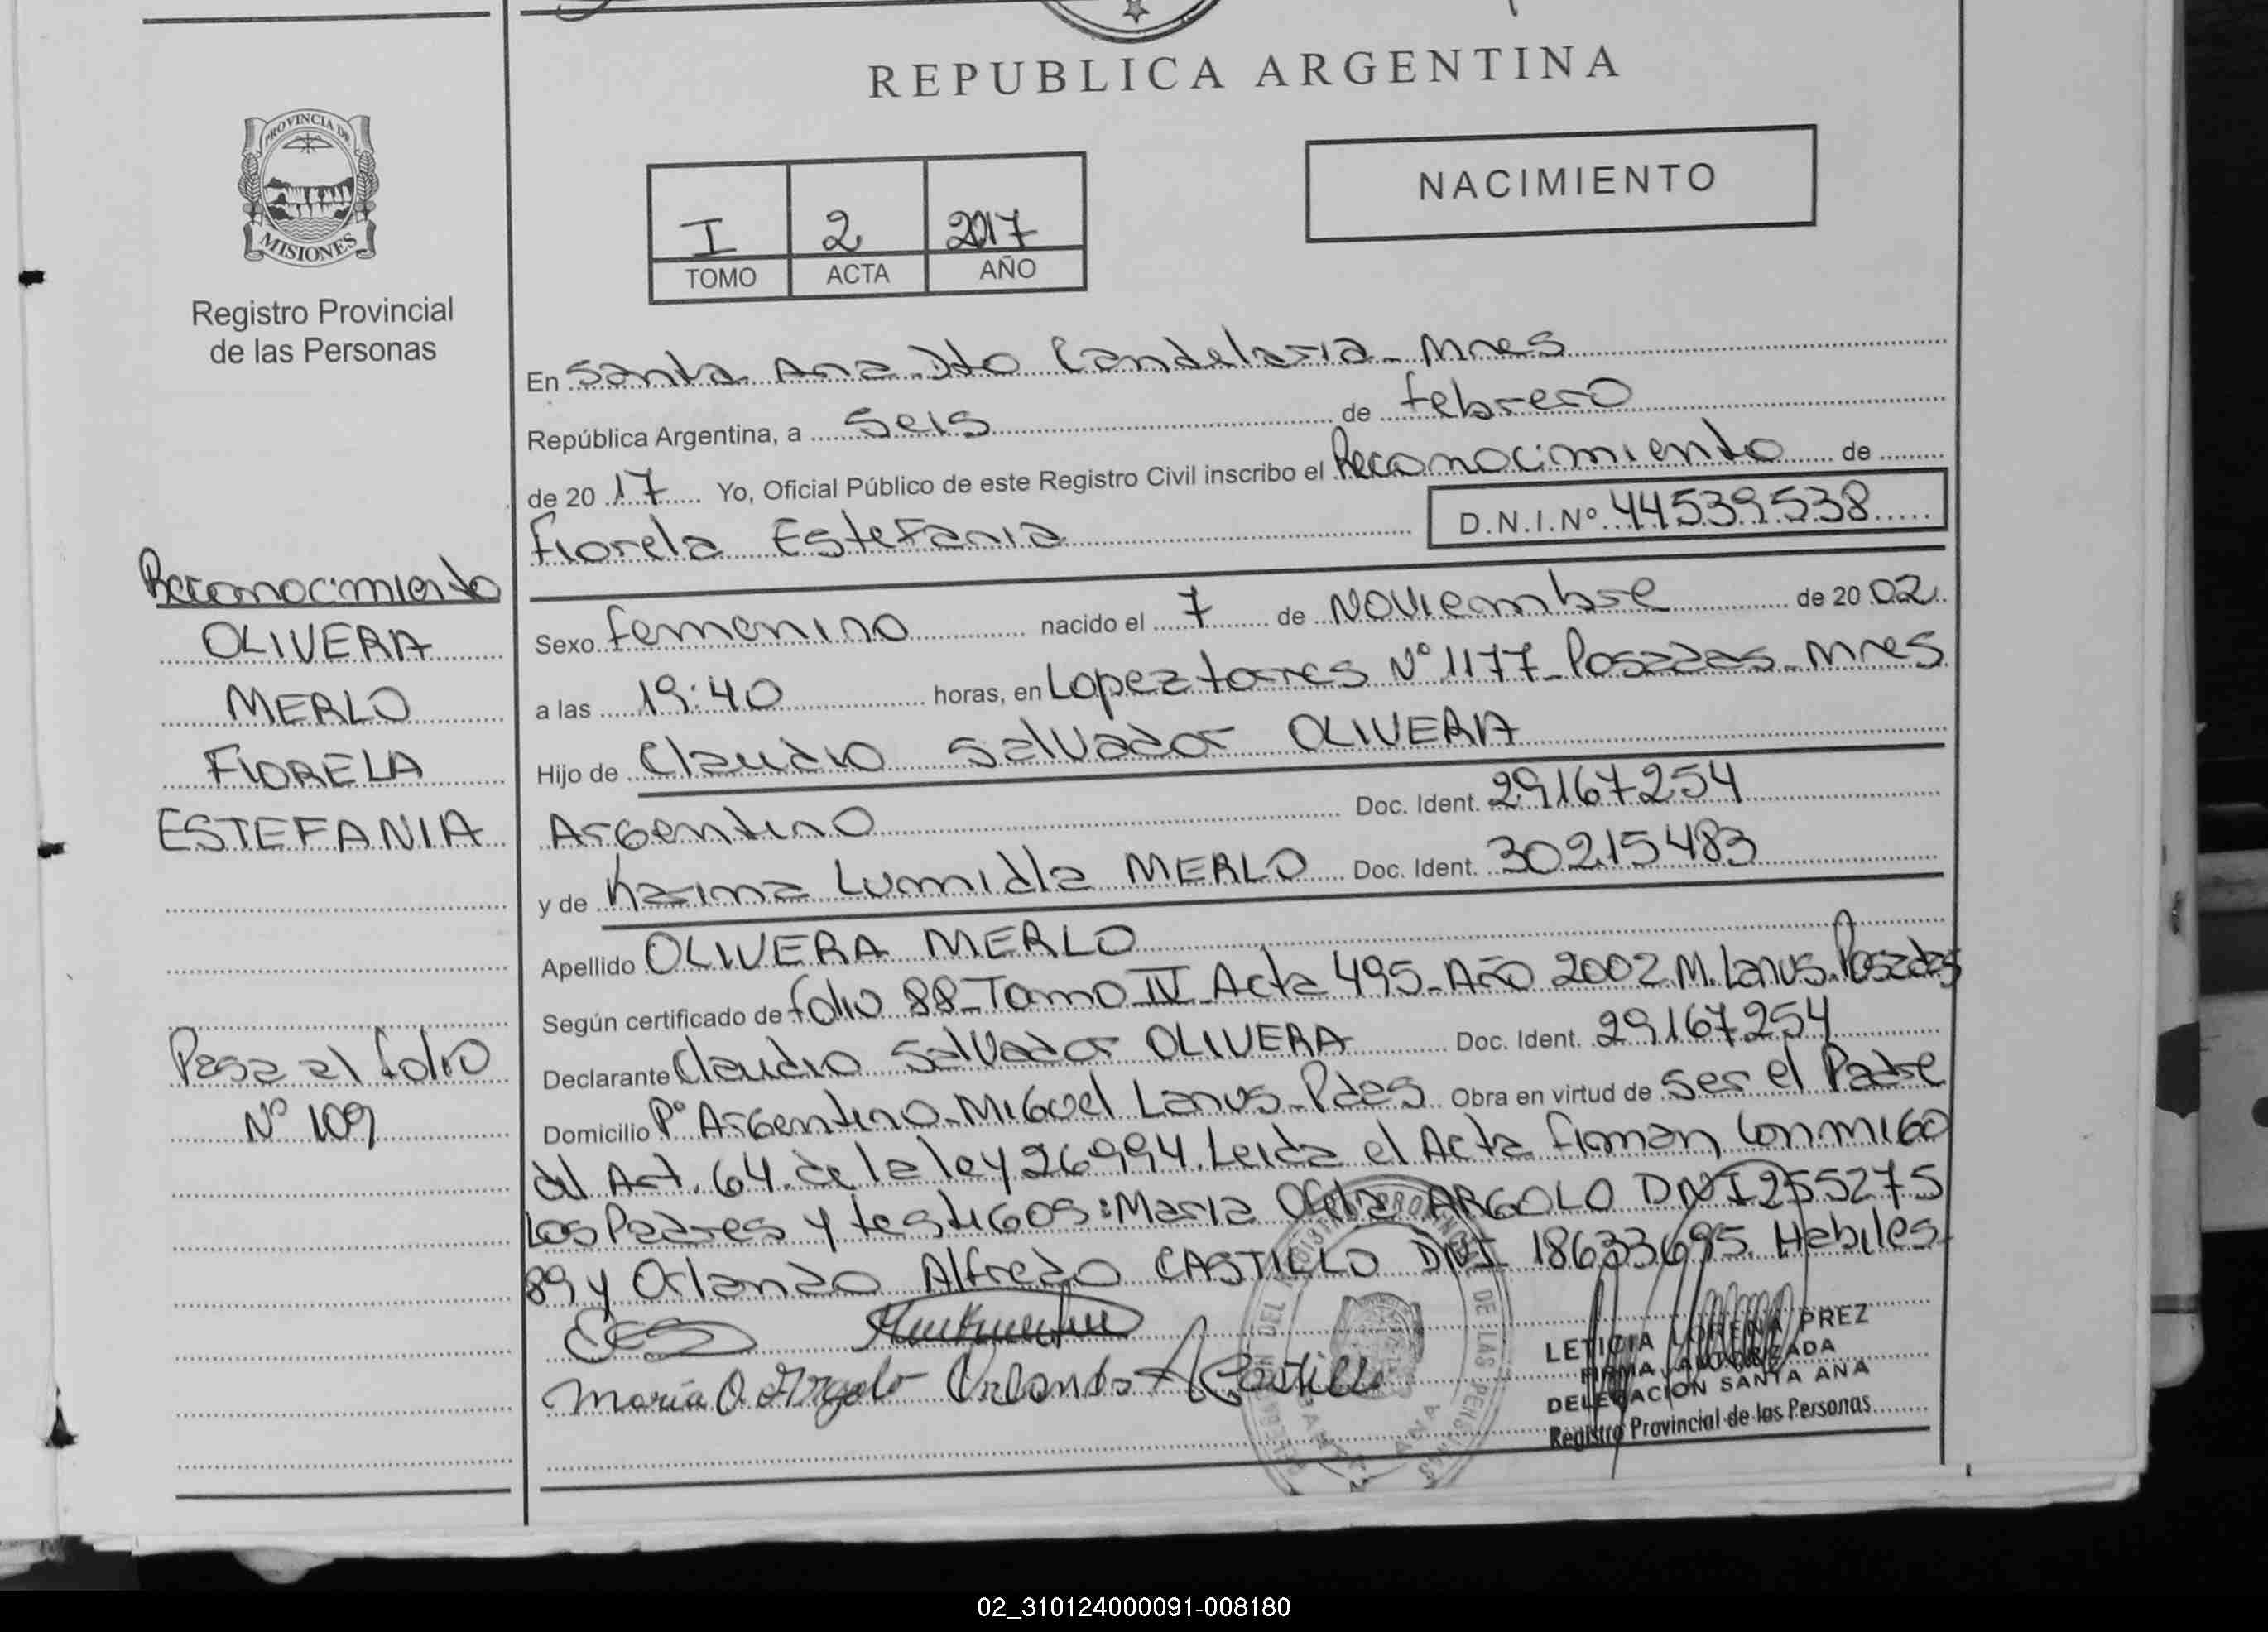 REPUBLICA ARGENTINA
PROVINCIA DE
MISIONES
Registro Provincial
de las Personas
NACIMIENTO
I 2 2017
TOMO ACTA AÑO
En Santa Ana Dto Candelaria - Mnes
República Argentina, a Seis de febrero
de 2017 Yo, Oficial Público de este Registro Civil inscribo el Reconocimiento de
Fiorela Estefania D.N.I.Nº 44539538
Reconocimiento
OLIVERA
MERLO
FIORELA
ESTEFANIA
Pasa al folio
Nº 109
Sexo femenino nacido el 7 de Noviembre de 2002
a las 19:40 horas, en Lopez torres Nº 1177 - Posadas - Mnes
Hijo de Claudio Salvador OLIVERA
Argentino Doc. Ident. 29167254
y de Karina Lumidla MERLO Doc. Ident. 30215483
Apellido OLIVERA MERLO
Según certificado de folio 88 - Tomo IV - Acta 495 - Año 2002 M. Lanus - Posadas
Declarante Claudio Salvador OLIVERA Doc. Ident. 29167254
Domicilio Pº Argentino - Miguel Lanus - Pdas Obra en virtud de Ser el Padre
del Art. 64. de la ley 26994. Leida el Acta firman conmigo
Los Padres y testigos: Maria Ofelia ARGOLO DNI 255275
89 y Orlando Alfredo CASTILLO DNI 18633695. Habiles.
Maria O. Argolo Orlando A Castillo
DEL REGISTRO PROVINCIAL DE LAS PERSONAS
SANTA ANA
LETICIA LORENA PREZ
FIRMA AUTORIZADA
DELEGACION SANTA ANA
Registro Provincial de las Personas
02_310124000091-008180